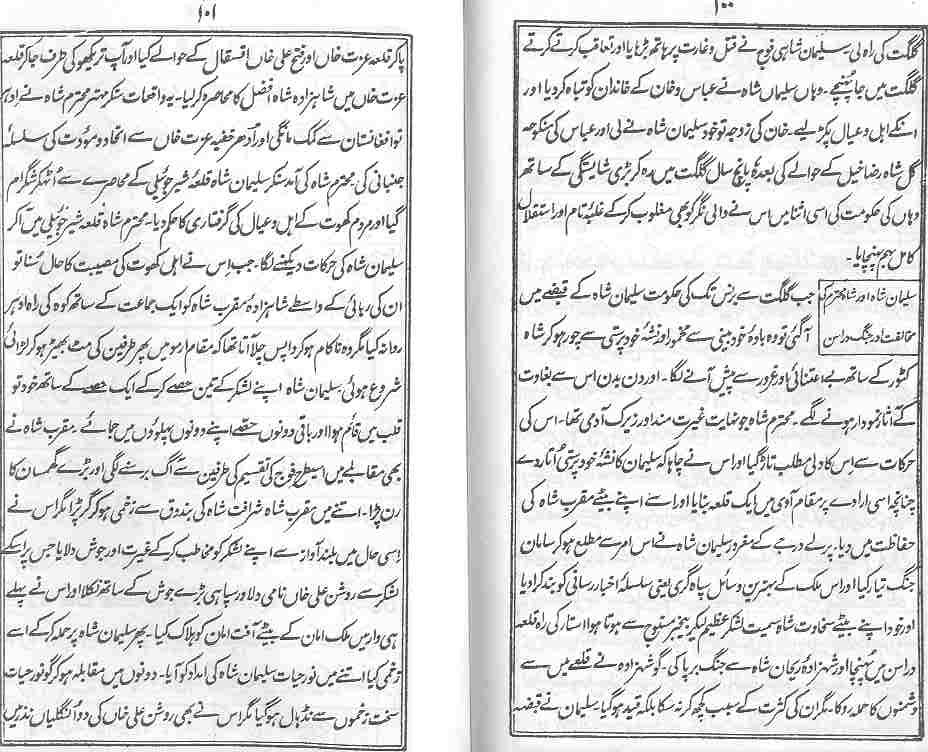 ۱۰۰
گلگت کی راہ لی۔ سلیمان شاہی فوج نے قتل وغارت پر ہاتھ بڑھایا اور تعاقب کرتے کرتے
گلگت میں جا پہنچے۔ وہاں سلیمان شاہ نے عباس وخان کے خاندان کو تباہ کر دیا اور
انکے اہل وعیال پکڑ لیے۔ خان کی زوجہ تو خود سلیمان شاہ نے لی اور عباس کی منکوحہ
گل شاہ رضاخیل کے حوالے کی بعدہٗ پانچ سال گلگت میں رہ کر بڑی شایستگی کے ساتھ
وہاں کی حکومت کی اسی اثنا میں اس نے والی نگر کو بھی مغلوب کر کے غلبہ تام اور استقلال
کامل بہم پہنچایا۔
سلیمان شاہ اور شاہ محترم کی
مخالفت اور جنگ دراسن
جب گلگت سے برنس تک کی حکومت سلیمان شاہ کے قبضے میں
آگئی تو وہ بادۂ خود بینی سے مخمور اور نشہ خود پرستی سے چور ہو کر شاہ
کٹور کے ساتھ بے اعتنائی اور غرور سے پیش آنے لگا۔ اور دن بدن اس سے بغاوت
کے آثار نمودار ہونے لگے۔ محترم شاہ جو نہایت غیرت مند اور زیرک آدمی تھا۔ اس کی
حرکات سے اس کا دلی مطلب تاڑ گیا اور اس نے چاہا کہ سلیمان کا نشہ خود پرستی اُتار دے
چنانچہ اسی ارادے پر مقام آوی میں ایک قلعہ بنایا اور اسے اپنے بیٹے مقرب شاہ کی
حفاظت میں دیا۔ پرلے درجے کے مغرور سلیمان شاہ نے اس امر سے مطلع ہو کر سامان
جنگ تیار کیا اور اس ملک کے بہترین وسائل سپاہ گری یعنی سلسلہ اخبار رسانی کو بند کرا دیا
اور خود اپنے بیٹے سخاوت شاہ سمیت لشکر عظیم لیکر بیخبر مستوج سے ہوتا ہوا استار کی راہ قلعہ
دراسن میں پہنچا اور شہزادہ ریحان شاہ سے جنگ برپا کی۔ گو شہزادہ نے قلعے میں سے
دشمنوں کا حملہ روکا۔ مگر ان کی کثرت کے سبب کچھ کر نہ سکا بلکہ قید ہو گیا سلیمان نے قبضہ
۱۰۱
پا کر قلعہ عزت خاں اور فتح علی خاں اقسقال کے حوالے کیا اور آپ تریکھو کی طرف جا کر قلعہ
عزت خاں میں شاہزادہ شاہ افضل کا محاصرہ کر لیا۔ یہ واقعات سنکر مہتر محترم شاہ نے ادہر
تو افغانستان سے کمک مانگی اور اُدھر خفیہ عزت خاں سے اتحاد و مودت کی سلسلہ
جنبانی کی محترم شاہ کی آمد سنکر سلیمان شاہ قلعہ شیر جوہلی کے محاصرے سے اُٹھکر شگرام
گیا اور مردم کھوت کے اہل وعیال کی گرفتاری کا حکم دیا۔ محترم شاہ قلعہ شیر جوہلی میں آکر
سلیمان شاہ کی حرکات دیکھنے لگا۔ جب اس نے اہل کھوت کی مصیبت کا حال سُنا تو
ان کی رہائی کے واسطے شاہزادہ مقرب شاہ کو ایک جماعت کے ساتھ کوہ کی راہ ادہر
روانہ کیا مگر وہ ناکام ہو کر واپس چلا آتا تھا کہ مقام ارمو میں پھر طرفین کی مٹ بھیڑ ہو کر لڑائی
شروع ہوئی۔ سلیمان شاہ اپنے لشکر کے تین حصے کر کے ایک حصے کے ساتھ خود تو
قلب میں قائم ہوا اور باقی دونوں حصے اپنے دونوں پہلوؤں میں جمائے۔ مقرب شاہ نے
بھی مقابلے میں اسیطرح فوج کی تقسیم کی طرفین سے آگ برسنے لگی اور بڑے گھمسان کا
رن پڑا۔ اتنے میں مقرب شاہ شرافت شاہ کی بندوق سے زخمی ہو کر گر پڑا مگر اس نے
اسی حال میں بلند آواز سے اپنے لشکر کو مخاطب کر کے غیرت اور جوش دلایا جس پر اسکے
لشکر سے روشن علی خاں نامی دلاور سپاہی بڑے جوش کے ساتھ نکلا اور اس نے پہلے
ہی وار میں ملک امان کے بیٹے آفت امان کو ہلاک کیا۔ پھر سلیمان شاہ پر حملہ کر کے اسے
زخمی کیا اتنے میں نور حیات سلیمان شاہ کی امداد کو آیا۔ دونوں میں مقابلہ ہو کر گو نور حیات
سخت زخموں سے نڈہال ہو گیا مگر اس نے بھی روشن علی خاں کی دو انگلیاں نذر لیں